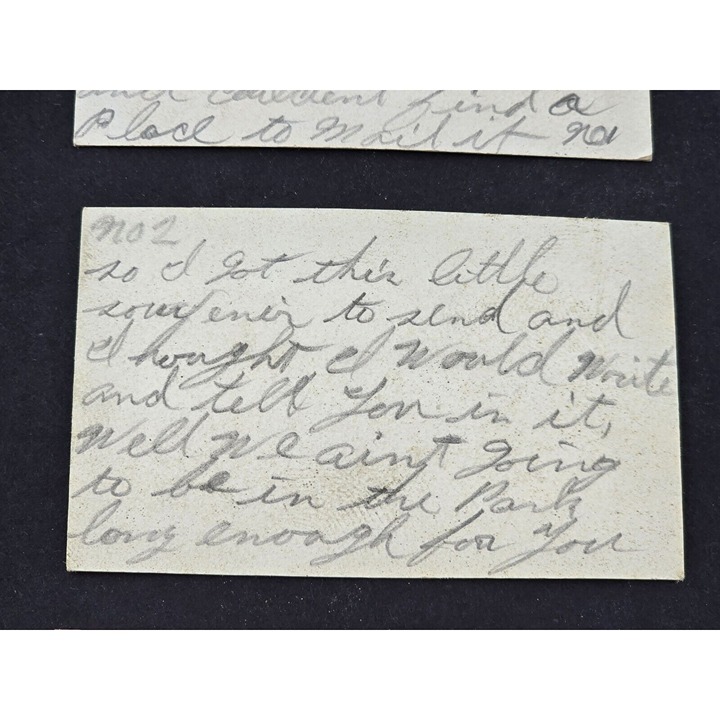 and couldent find a
Place to Mail it no
no 2
so I got this little
souvenir to send and
I hought I Would Write
and tell You in it,
Well We aint going
to be in the Park
long enough for You